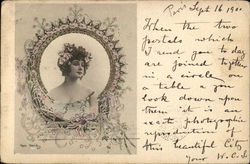 Paris Sept 16 1900
When the two
portals which
I send you to day
are joined together
in a circle on
a table & you
look down upon
them it is an
exact photographic
reproduction of
this beautiful City
Your W.C.S.